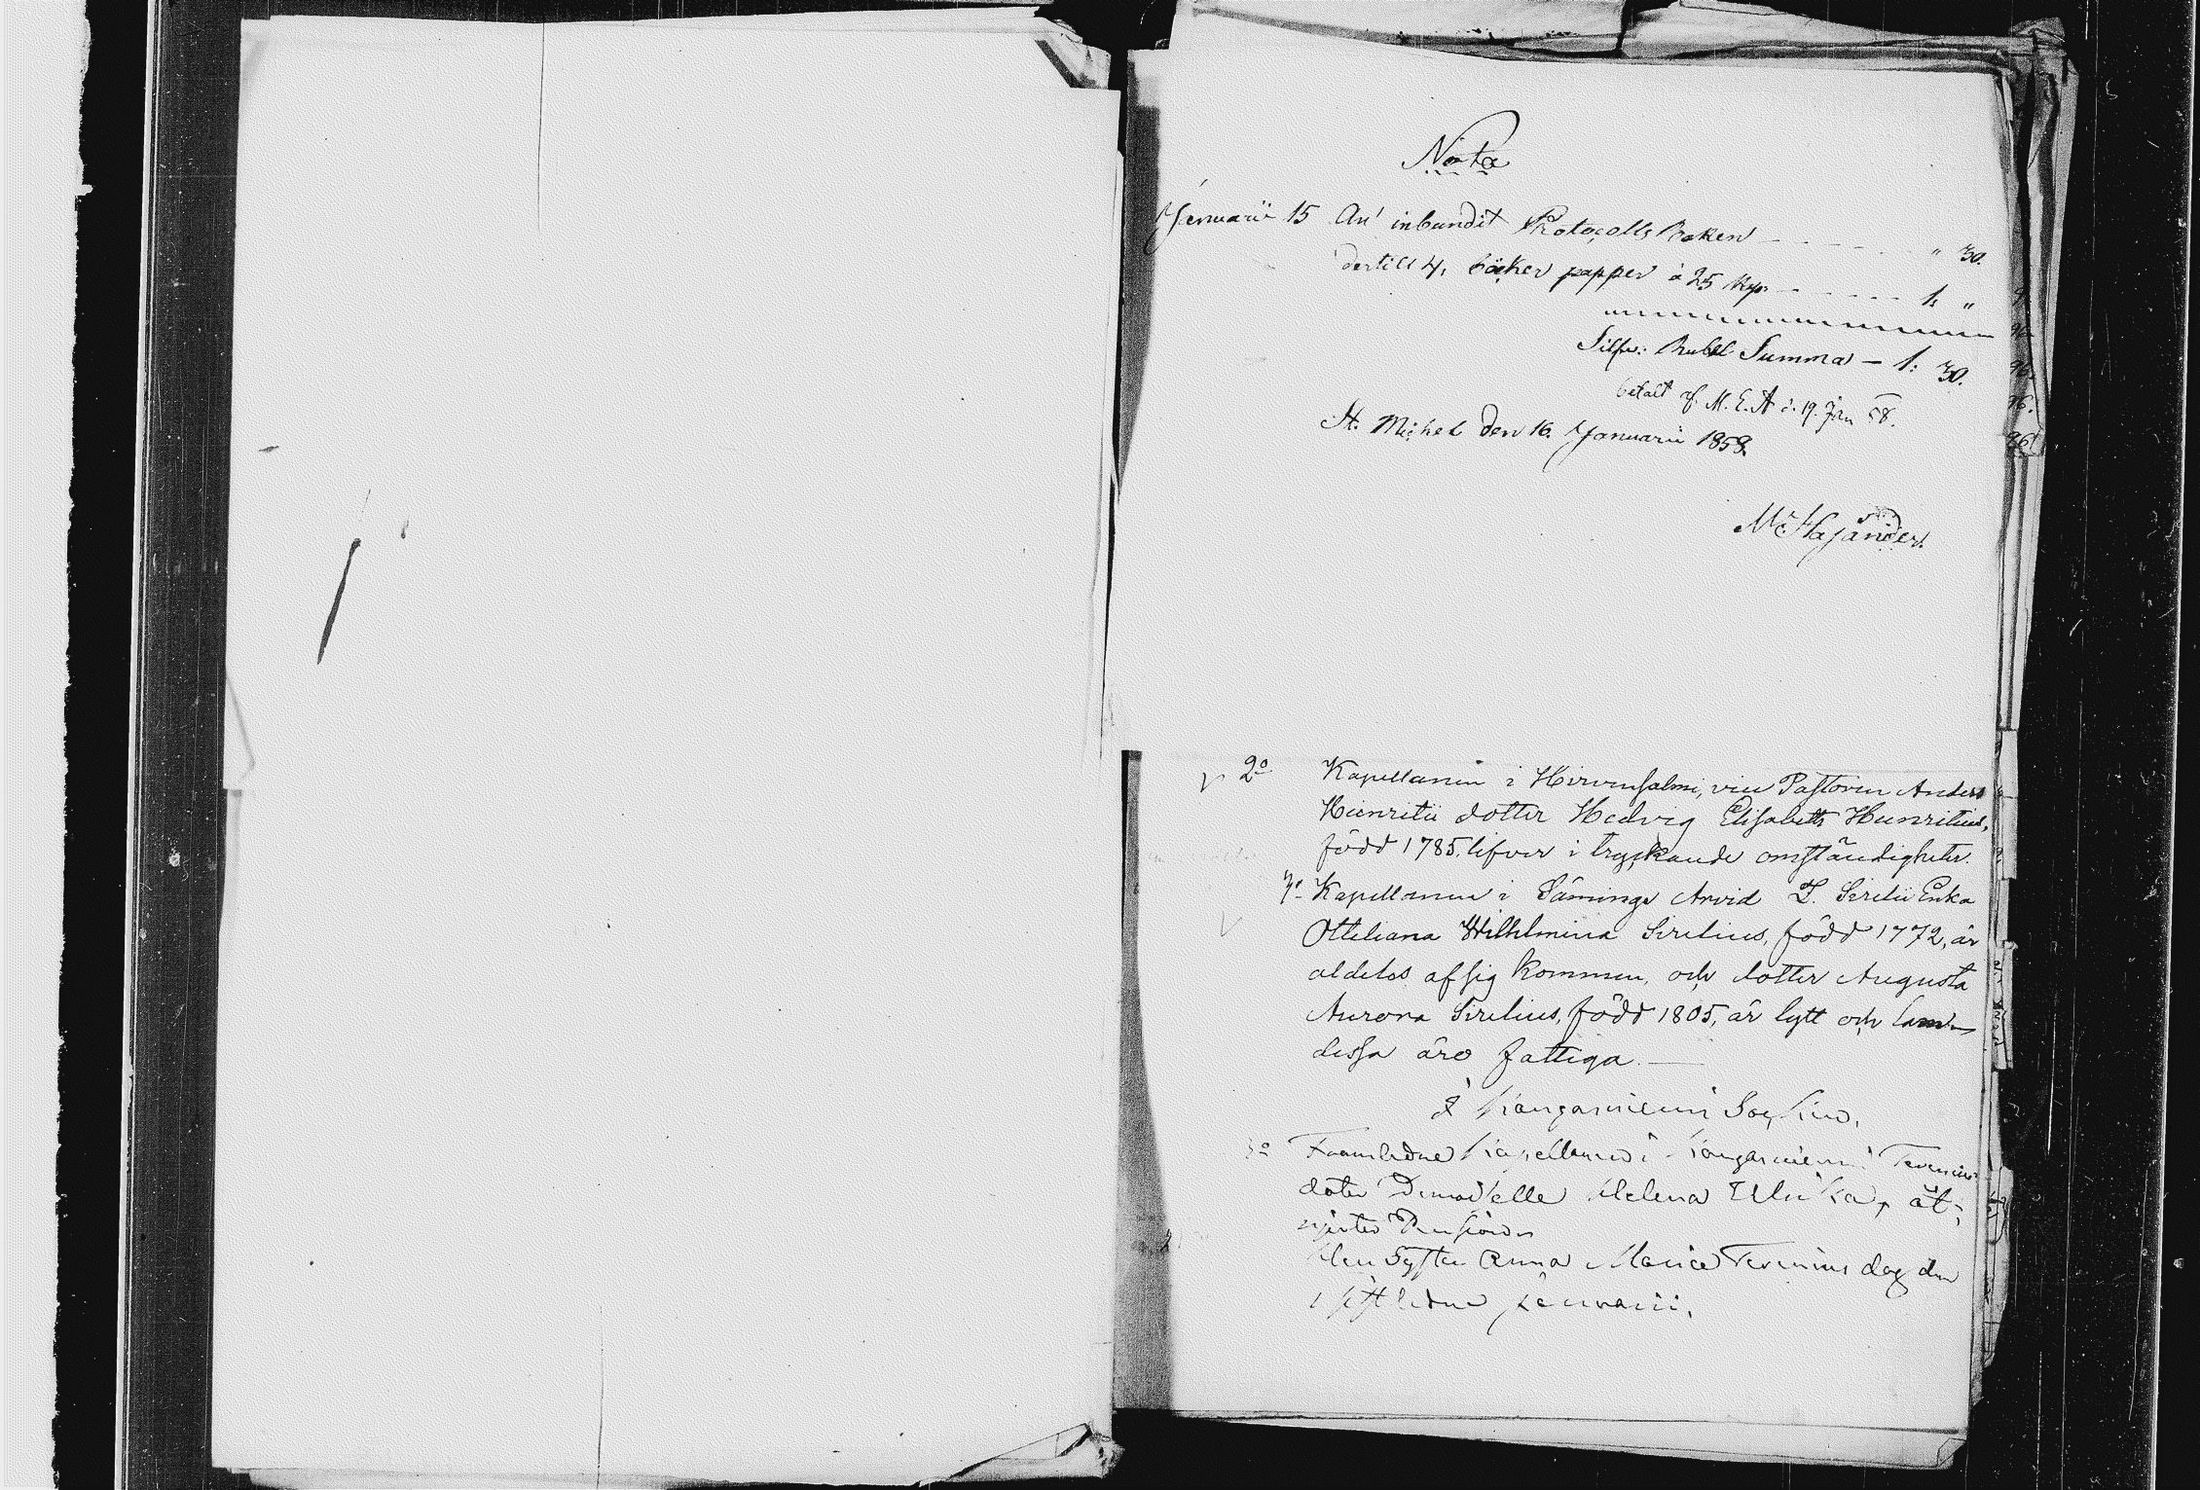 Nota
Januarii 15 An' inbundit Protocolls Boken - - - - " 30.
dertill 4, böcker papper à 25 kop. - - - - 1, "
Silfw: Rubel Summa - 1: 30.
betalt af M. E. A d. 19. Jan 58.
St. Michel den 16. Januarii 1858.
2o Kapellanen i Hirvensalmi, vice Pastoren Anders
Heinricii dotter Hedvig Elisabeth Heinricius,
född 1785, lefver i tryckande omständigheter.
3o Kapellanen i Säminge Arvid I. Sirelii Enka
Ottiliana Wilhelmina Sirelius, född 1772, är
aldeles af sig kommen, och dotter Augusta
Aurora Sirelius, född 1805, är lytt och lam
dessa äro fattiga. —
I Kangasniemi Socken.
Framledne Kapellanen i Kangasniemi Terenius
doter Demoiselle Helena Ulrika, åt-
njuter Pension
Men Syster Anna Maria Terenius dog den
1 sistledne januarii.